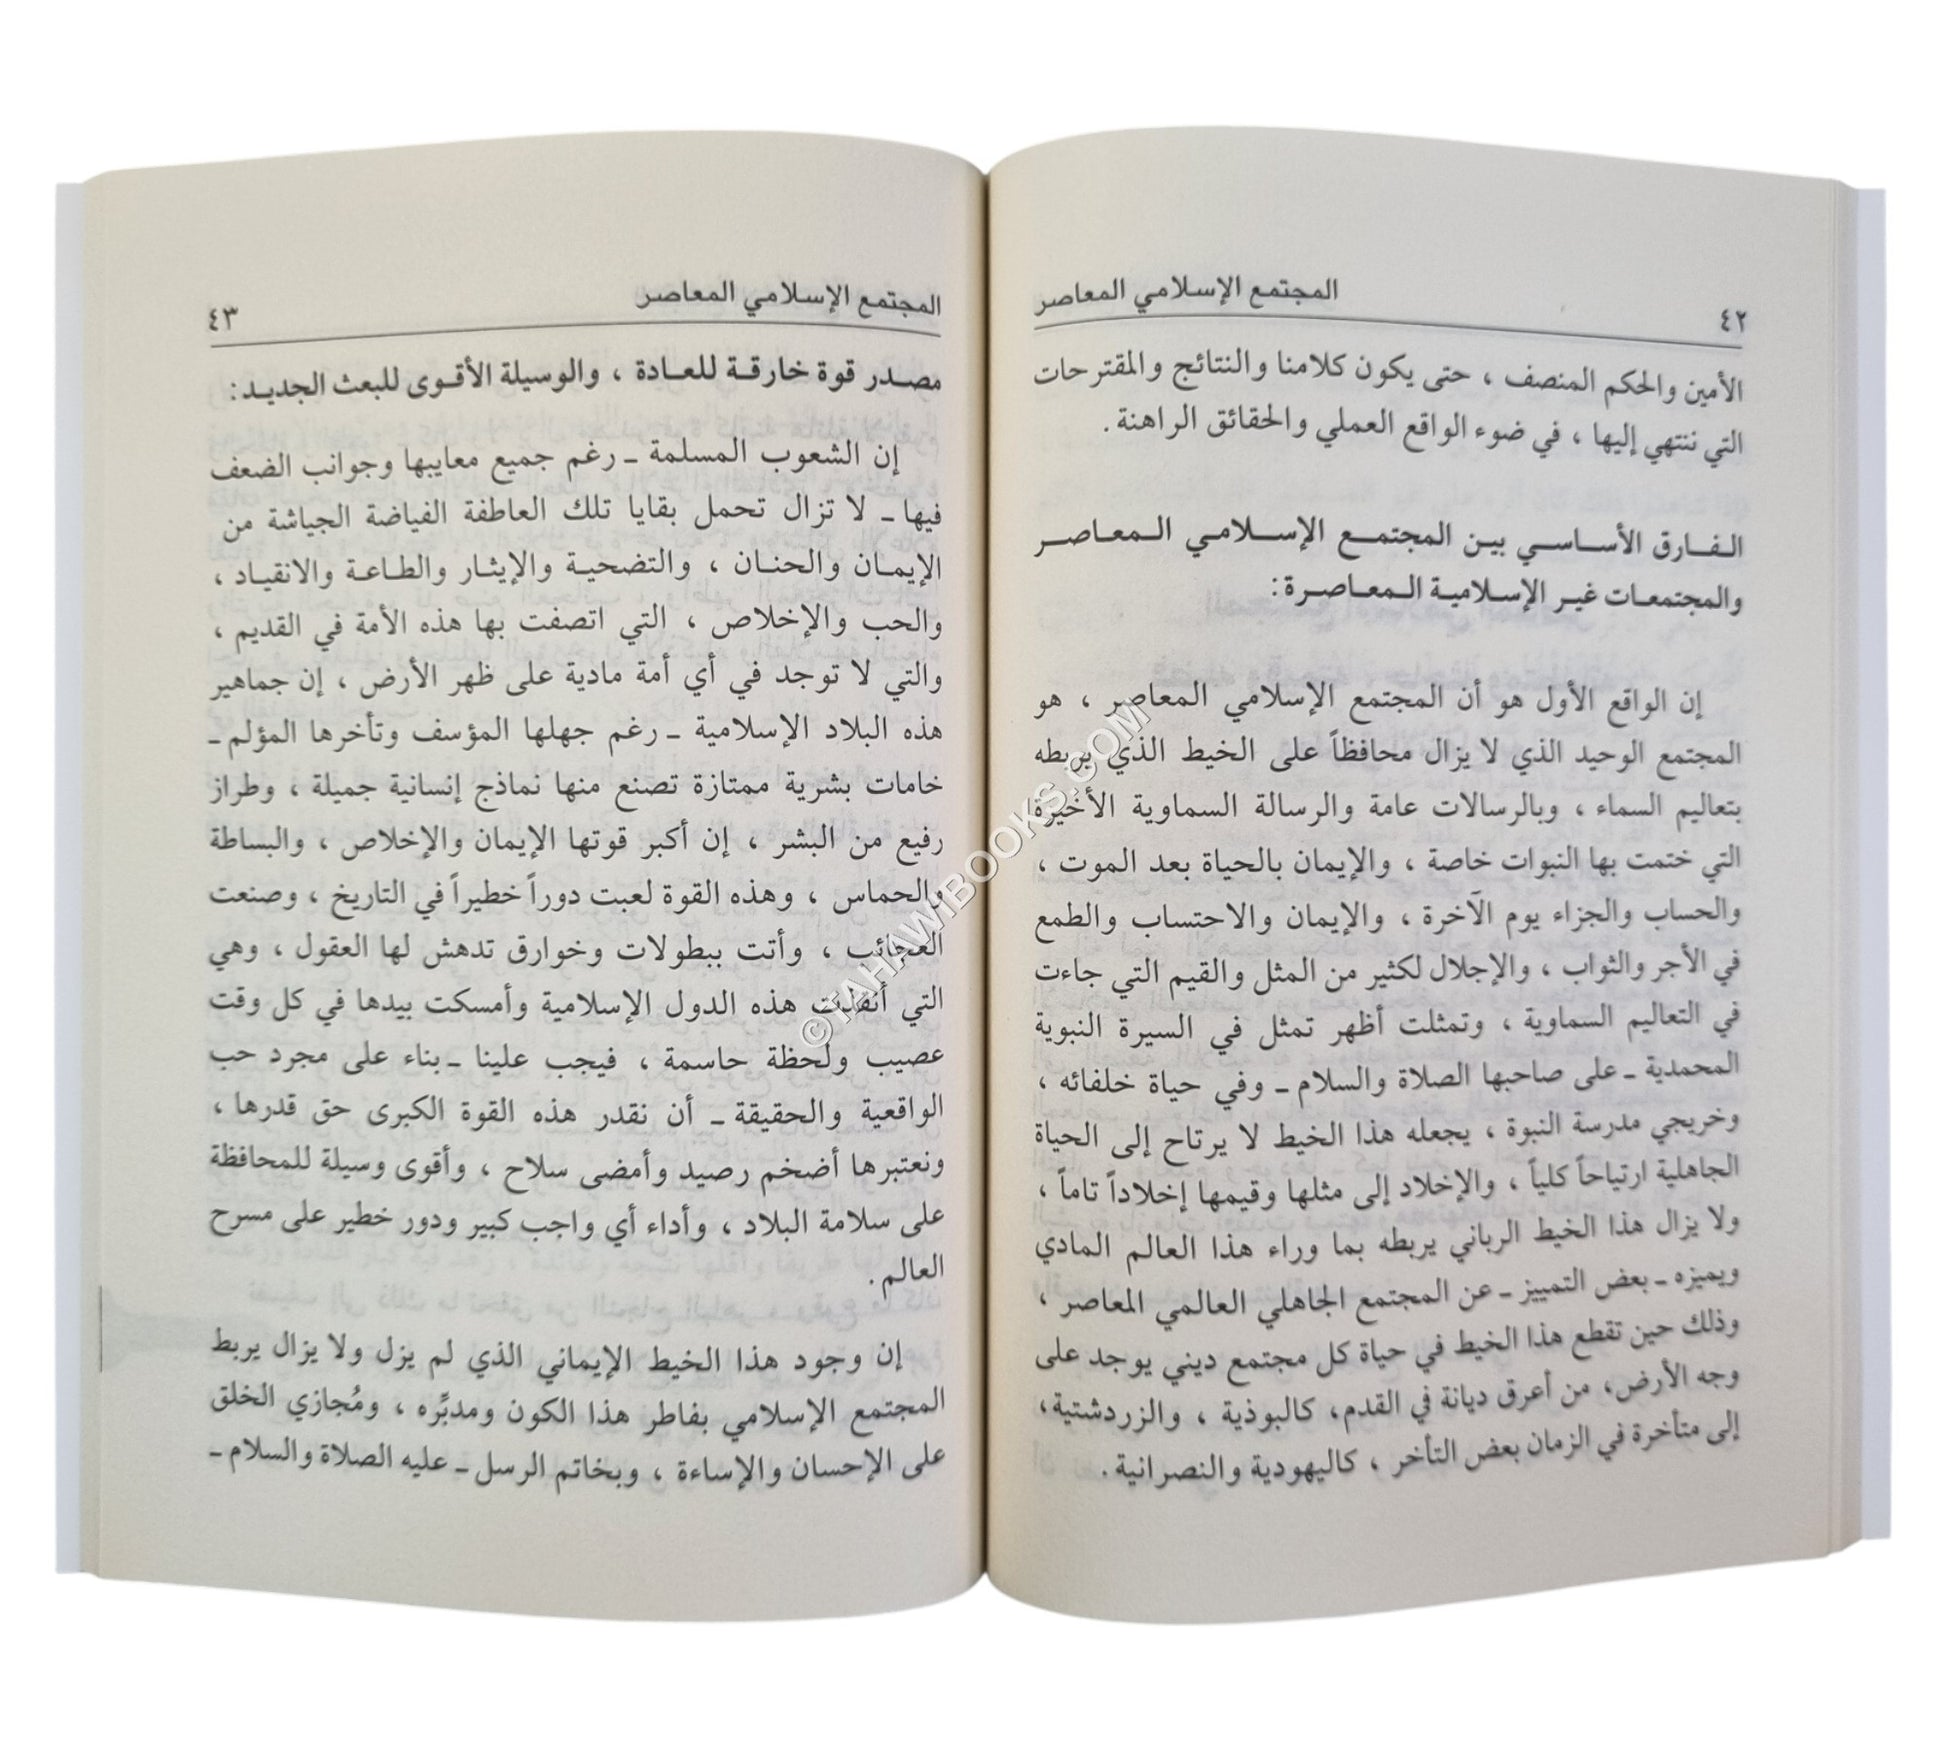 ٤٢
المجتمع الإسلامي المعاصر
الأمين والحكم المنصف ، حتى يكون كلامنا والنتائج والمقترحات
التي ننتهي إليها ، في ضوء الواقع العملي والحقائق الراهنة .
الفارق الأساسي بين المجتمع الإسلامي المعاصر
والمجتمعات غير الإسلامية المعاصرة :
إن الواقع الأول هو أن المجتمع الإسلامي المعاصر ، هو
المجتمع الوحيد الذي لا يزال محافظاً على الخيط الذي يربطه
بتعاليم السماء ، وبالرسالات عامة والرسالة السماوية الأخيرة
التي ختمت بها النبوات خاصة ، والإيمان بالحياة بعد الموت ،
والحساب والجزاء يوم الآخرة ، والإيمان والاحتساب والطمع
في الأجر والثواب ، والإجلال لكثير من المثل والقيم التي جاءت
في التعاليم السماوية ، وتمثلت أظهر تمثل في السيرة النبوية
المحمدية ـ على صاحبها الصلاة والسلام ـ وفي حياة خلفائه ،
وخريجي مدرسة النبوة ، يجعله هذا الخيط لا يرتاح إلى الحياة
الجاهلية ارتياحاً كلياً ، والإخلاد إلى مثلها وقيمها إخلاداً تاماً ،
ولا يزال هذا الخيط الرباني يربطه بما وراء هذا العالم المادي
ويميزه ـ بعض التمييز ـ عن المجتمع الجاهلي العالمي المعاصر ،
وذلك حين تقطع هذا الخيط في حياة كل مجتمع ديني يوجد على
وجه الأرض، من أعرق ديانة في القدم، كالبوذية ، والزردشتية،
إلى متأخرة في الزمان بعض التأخر ، كاليهودية والنصرانية .
المجتمع الإسلامي المعاصر
٤٣
مصدر قوة خارقة للعادة ، والوسيلة الأقوى للبعث الجديد :
إن الشعوب المسلمة ـ رغم جميع معايبها وجوانب الضعف
فيها ـ لا تزال تحمل بقايا تلك العاطفة الفياضة الجياشة من
الإيمان والحنان ، والتضحية والإيثار والطاعة والانقياد ،
والحب والإخلاص ، التي اتصفت بها هذه الأمة في القديم ،
والتي لا توجد في أي أمة مادية على ظهر الأرض ، إن جماهير
هذه البلاد الإسلامية ـ رغم جهلها المؤسف وتأخرها المؤلم ـ
خامات بشرية ممتازة تصنع منها نماذج إنسانية جميلة ، وطراز
رفيع من البشر ، إن أكبر قوتها الإيمان والإخلاص ، والبساطة
والحماس ، وهذه القوة لعبت دوراً خطيراً في التاريخ ، وصنعت
العجائب ، وأتت ببطولات وخوارق تدهش لها العقول ، وهي
التي أنقذت هذه الدول الإسلامية وأمسكت بيدها في كل وقت
عصيب ولحظة حاسمة ، فيجب علينا ـ بناء على مجرد حب
الواقعية والحقيقة ـ أن نقدر هذه القوة الكبرى حق قدرها ،
ونعتبرها أضخم رصيد وأمضى سلاح ، وأقوى وسيلة للمحافظة
على سلامة البلاد ، وأداء أي واجب كبير ودور خطير على مسرح
العالم .
إن وجود هذا الخيط الإيماني الذي لم يزل ولا يزال يربط
المجتمع الإسلامي بفاطر هذا الكون ومدبِّره ، ومُجازي الخلق
على الإحسان والإساءة ، وبخاتم الرسل ـ عليه الصلاة والسلام ـ
©TAHAWIBOOKS.COM